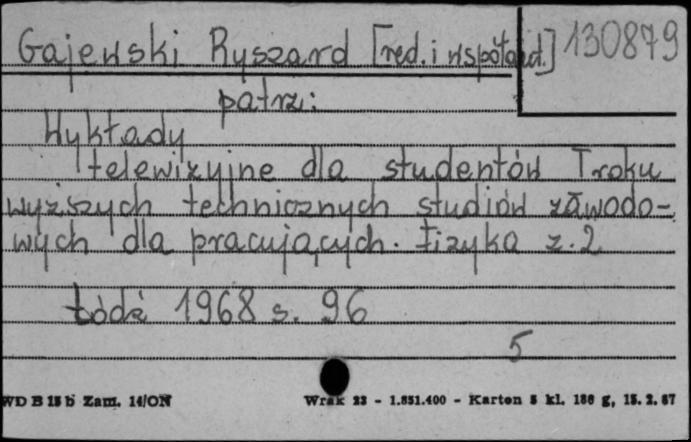 Gajewski Ryszard [red. i współaut.] 130879
patrz:
Wykłady
telewizyjne dla studentów I roku
wyższych technicznych studiów zawodo-
wych dla pracujących. Fizyka z. 2
Łódź 1968 s. 96
5
WD B 15 b Zam. 14/ON Wrak 23 - 1.851.400 - Karton 5 kl. 186 g, 15. 2. 67